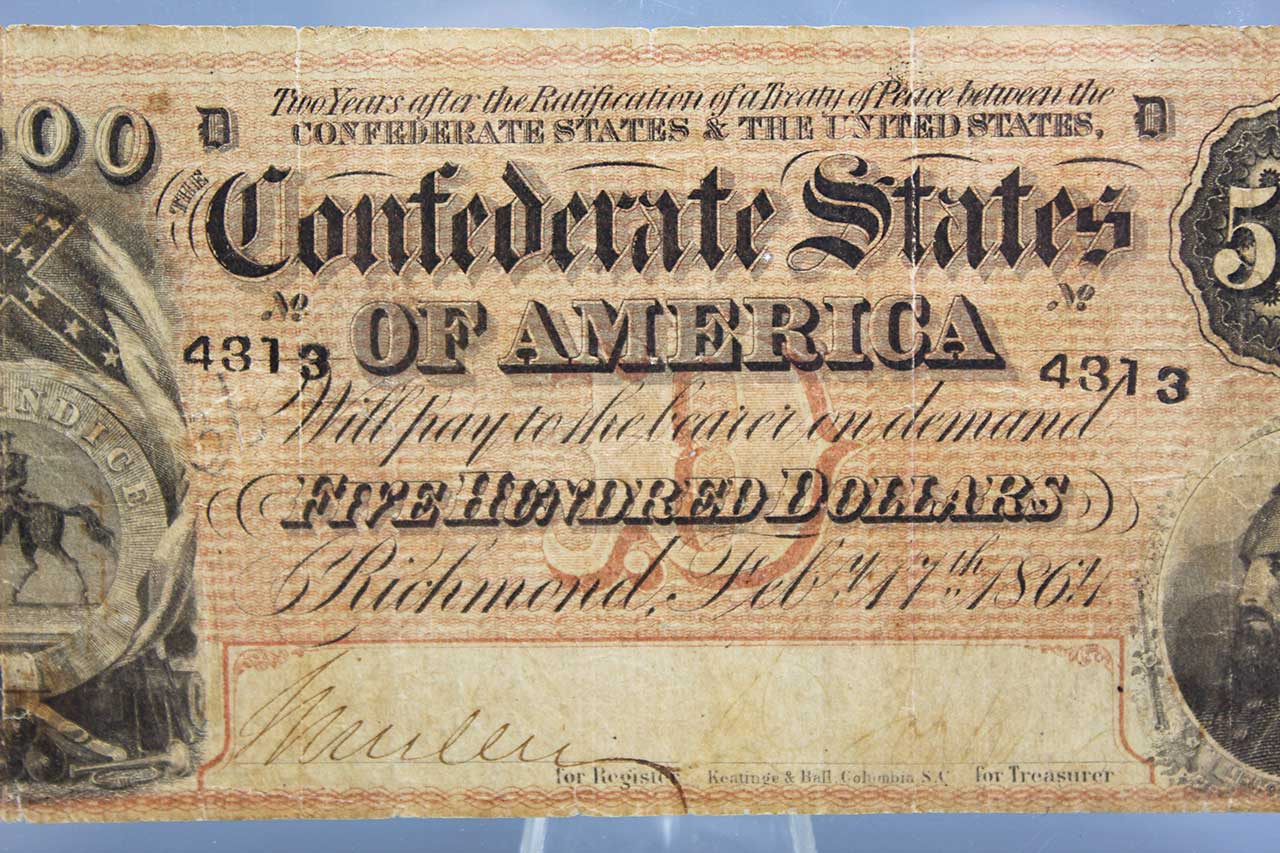 500
D Two Years after the Ratification of a Treaty of Peace between the D
CONFEDERATE STATES & THE UNITED STATES,
THE Confederate States
No OF AMERICA No
4313 4313
Will pay to the bearer on demand
FIVE HUNDRED DOLLARS
Richmond, Feby. 17th. 1864.
D
5
INDICE
for Register Keatinge & Ball, Columbia S.C for Treasurer